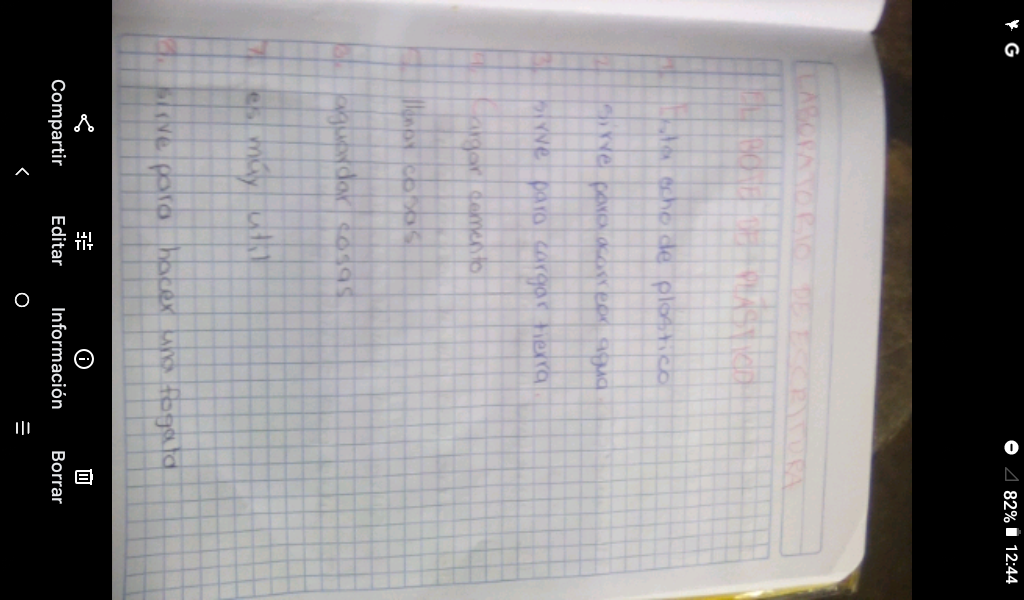 G
82% 12:44
LABORATORIO DE ESCRITURA
EL BOTE DE PLÁSTICO
1. Esta echo de plastico
2. sirve para acarrear agua.
3. sirve para cargar tierra.
4. Cargar cemento
5. llinar cosas
6. aguardar cosas
7. es múy util
8. sirve para hacer una fogata
Compartir
Editar
Información
Borrar